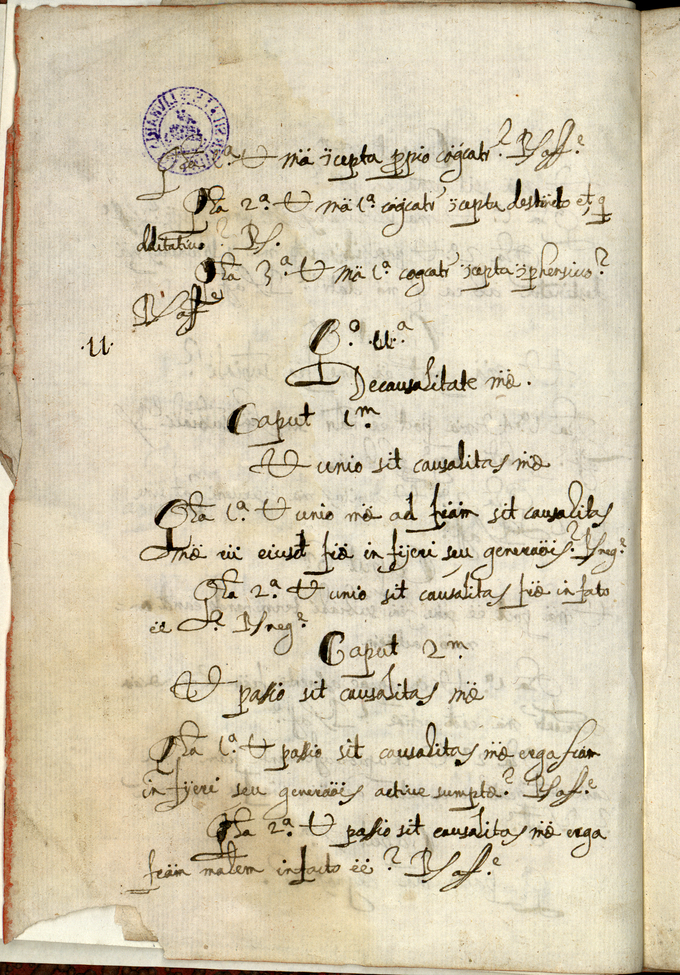 Qta 1.ª U mä ɔcepta ppio cogcatr? Rs aff.e
Qta 2.ª U mä 1.ª cogcatr ɔcepta distincto et q
dditativo? Rs.
Qta 3.ª U mä 1.ª cogcatr ɔcepta ɔphensivo?
Rs affe
.11. Q.o 11.ª
De causalitate mæ.
Caput 1.m
U unio sit causalitas mæ
Qta 1.ª U unio mæ ad främ sit causalitas
mæ eiusd fræ in fijeri seu generaöis? Rs neg.e
Qta 2.ª U unio sit causalitas fræ in fato
ëë Rs neg.e
Caput 2.m
U pasio sit causalitas mæ
Qta 1.ª U passio sit causalitas mæ erga främ
in fijeri seu generaöis active sumptæ? Rs af.e
Qta 2.ª U pasio sit causalitas mæ erga
främ malem in facto ëë? Rs af.e